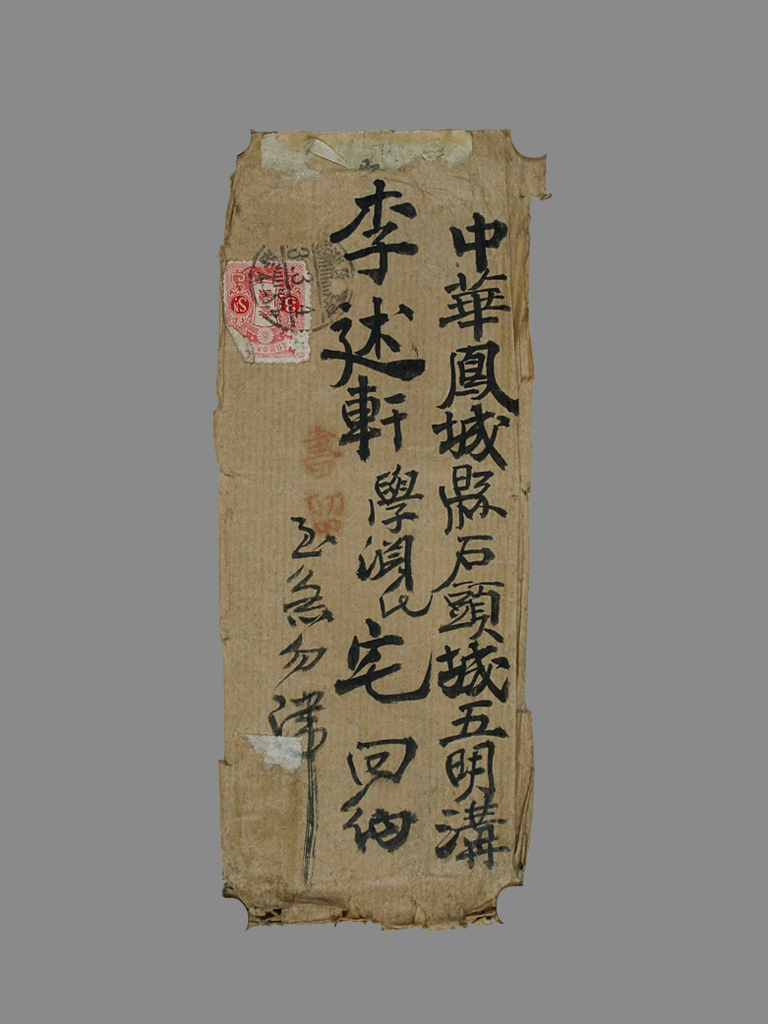 中華鳳城縣石頭城五明溝
李述軒 學淵氏 宅 回納
至急勿滯
書留